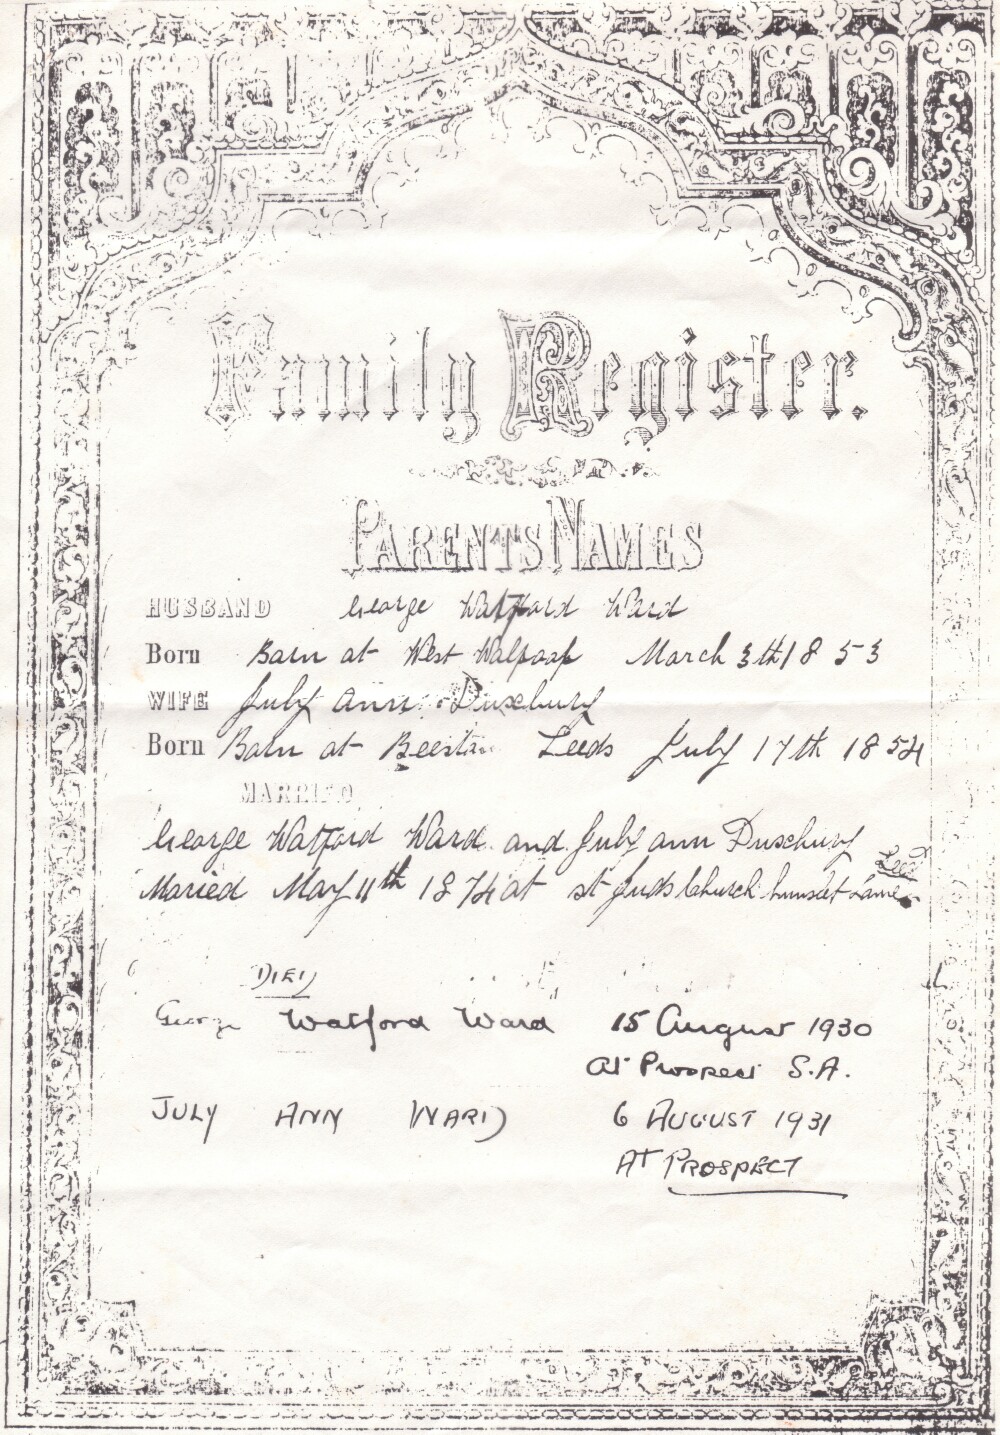 Family Register.
PARENTS NAMES
HUSBAND George Watford Ward
Born Born at West Walpoap March 3th 1853
WIFE July ann Duxebury
Born Born at Beeston Leeds July 17th 1854
MARRIED
George Watford Ward and July ann Duxebury
Leeds
Maried May 11th 1874 at st Juds Church hunslet Lane
DIED
George Watford Ward 15 August 1930
At Prospect S.A.
JULY ANN WARD 6 AUGUST 1931
AT PROSPECT